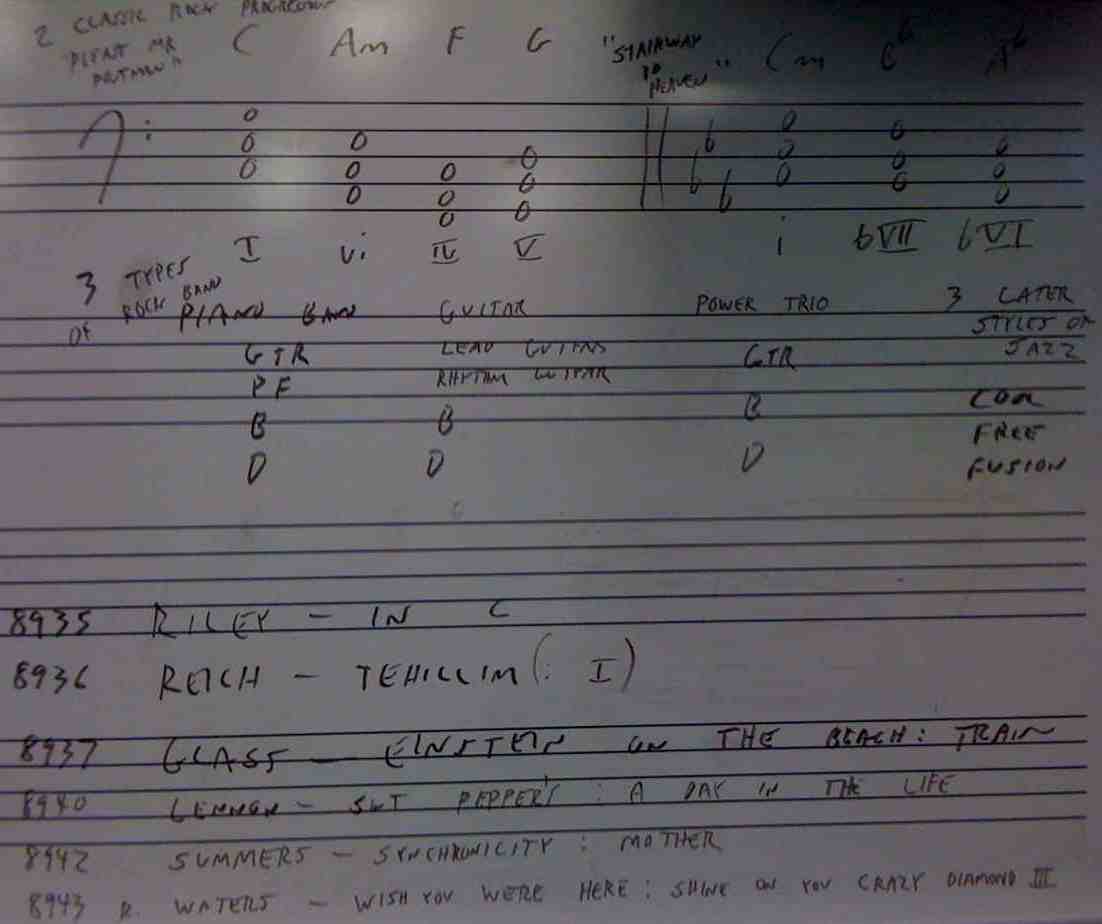 2 CLASSIC ROCK PROGRESSIONS
"PLEASE MR POSTMAN" C Am F G "STAIRWAY TO HEAVEN" Cm Bb Ab
I vi IV V i bVII bVI
3 TYPES OF ROCK BAND
PIANO BAND GUITAR POWER TRIO 3 LATER STYLES OF JAZZ
GTR LEAD GUITAR GTR
PF RHYTHM GUITAR
B B B COOL
FREE
D D D FUSION
8935 RILEY - IN C
8936 REICH - TEHILLIM (: I)
8937 GLASS - EINSTEIN ON THE BEACH: TRAIN
8940 LENNON - SGT PEPPER'S : A DAY IN THE LIFE
8942 SUMMERS - SYNCHRONICITY : MOTHER
8943 R. WATERS - WISH YOU WERE HERE: SHINE ON YOU CRAZY DIAMOND III